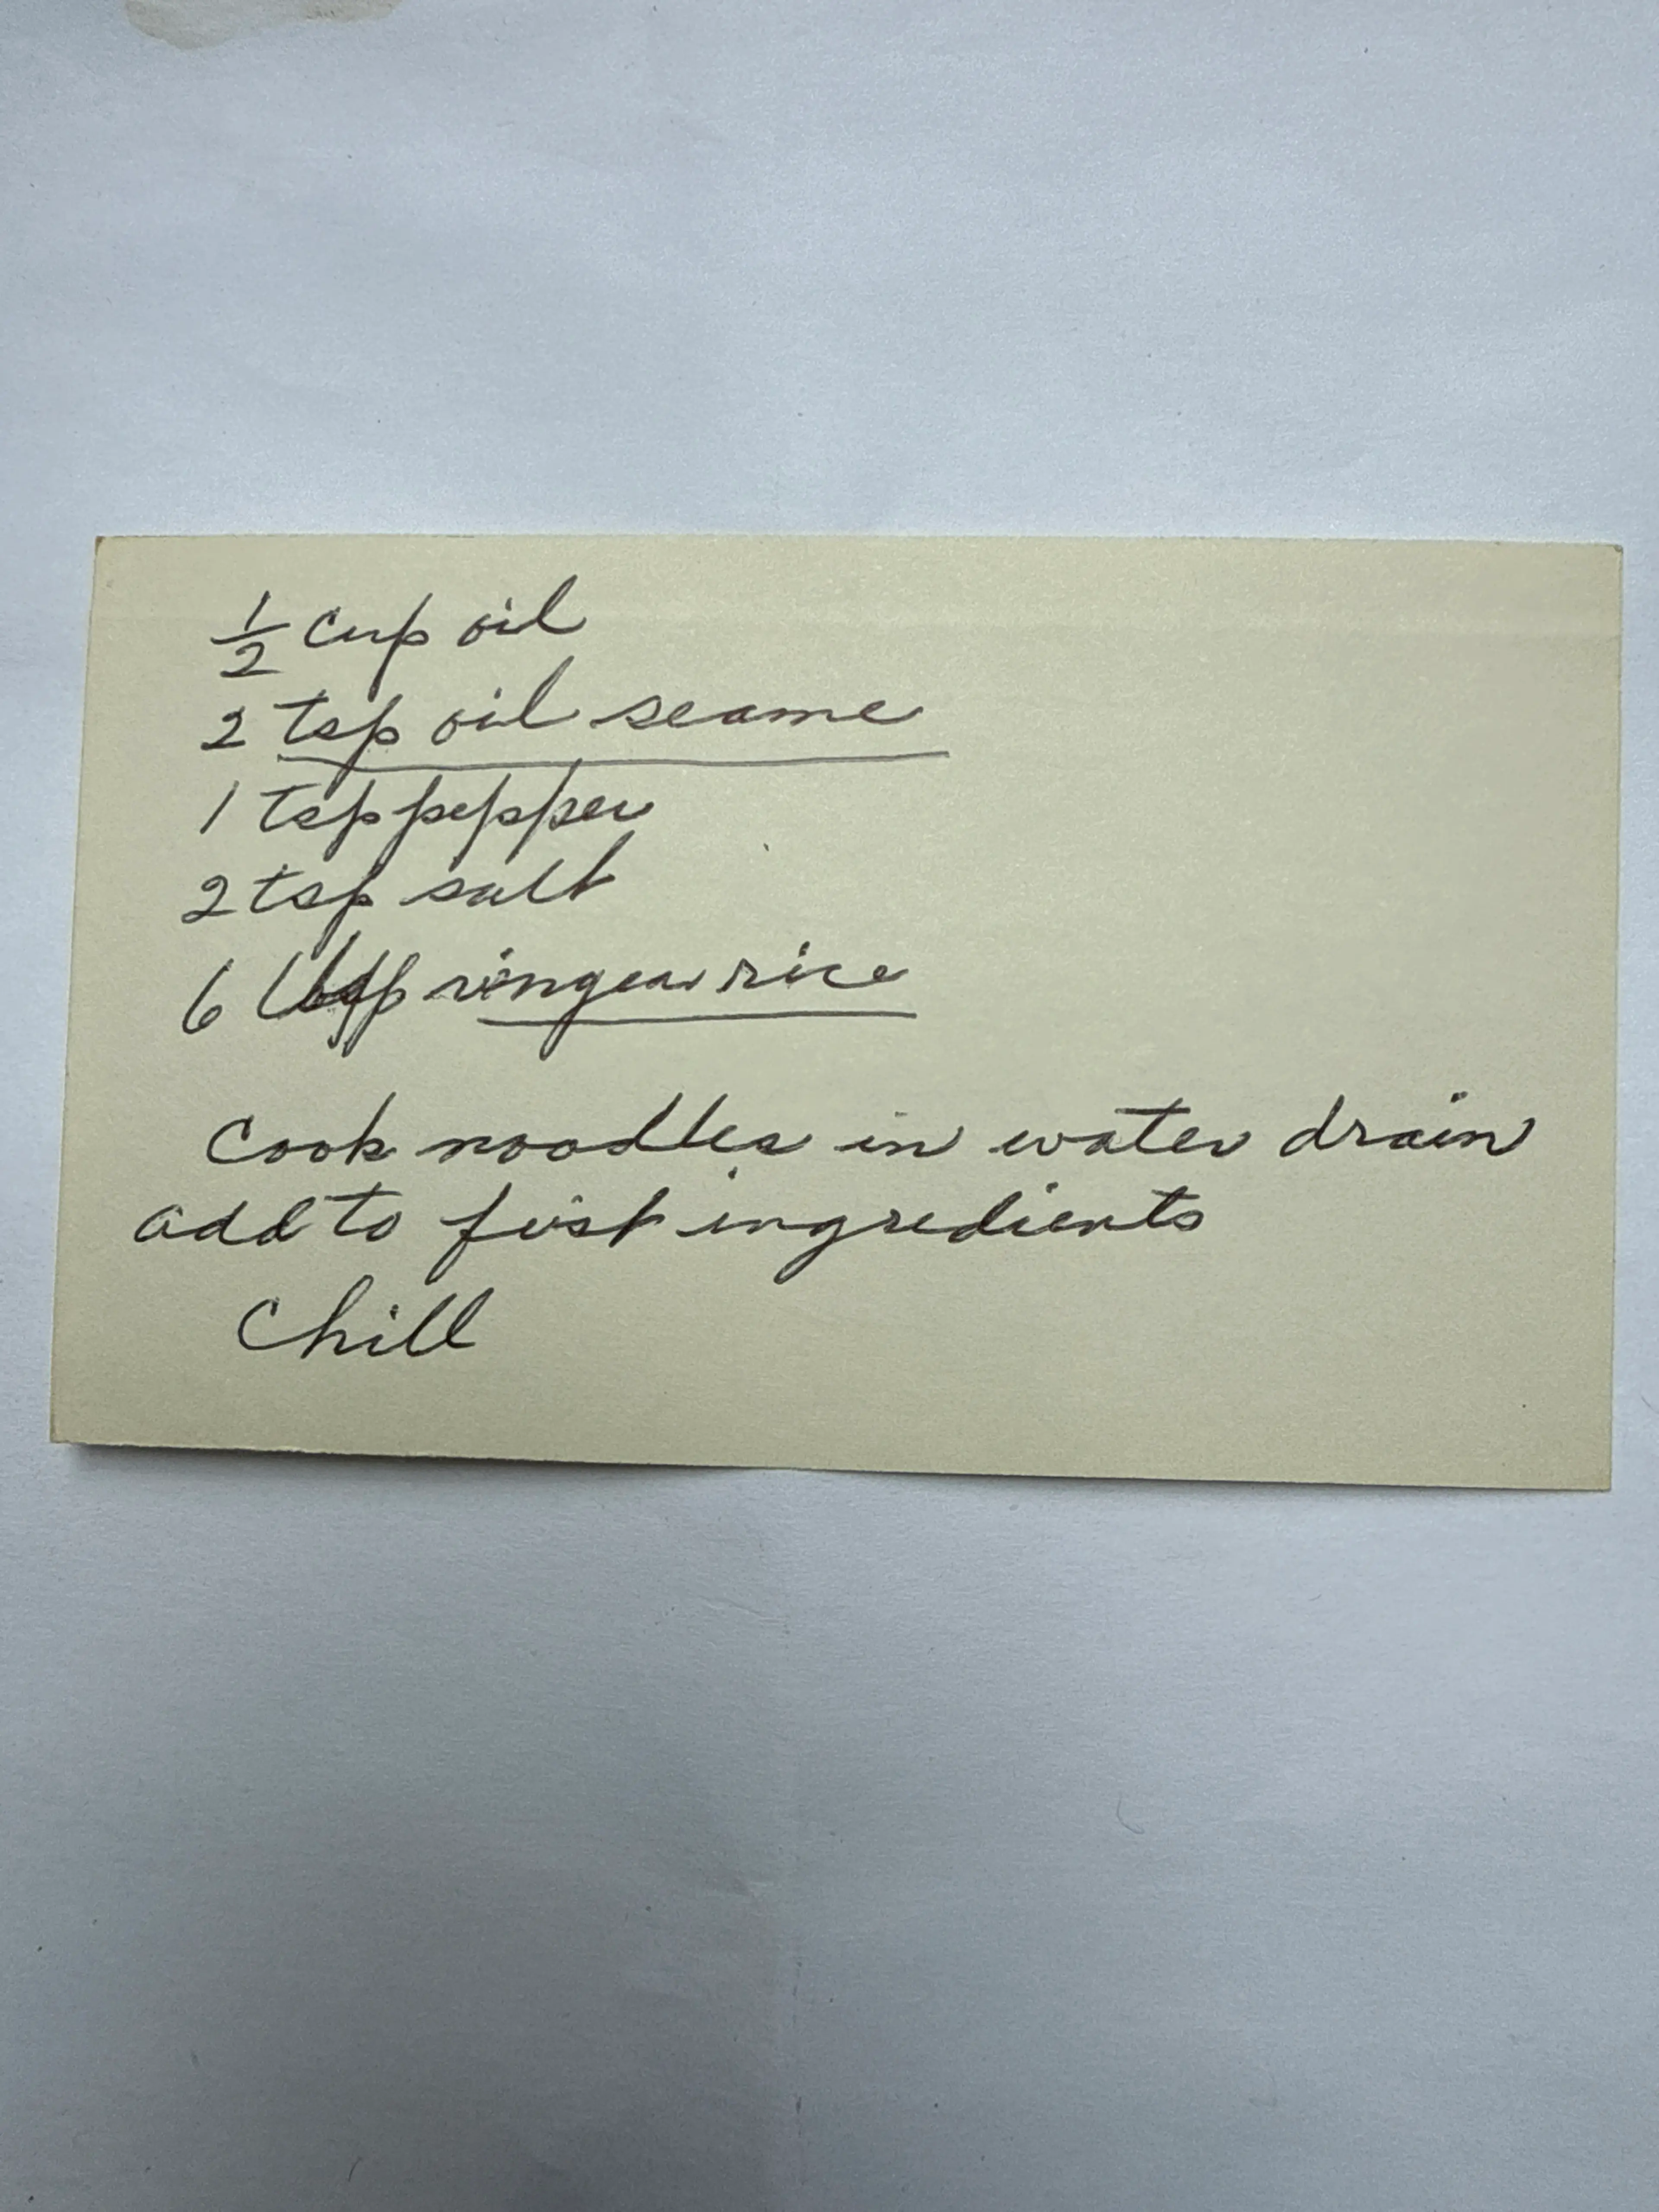 ½ cup oil
2 tsp oil seame
1 tsp pepper
2 tsp salt
6 rice
Cook noodles in water drain
add to first ingredients
Chill